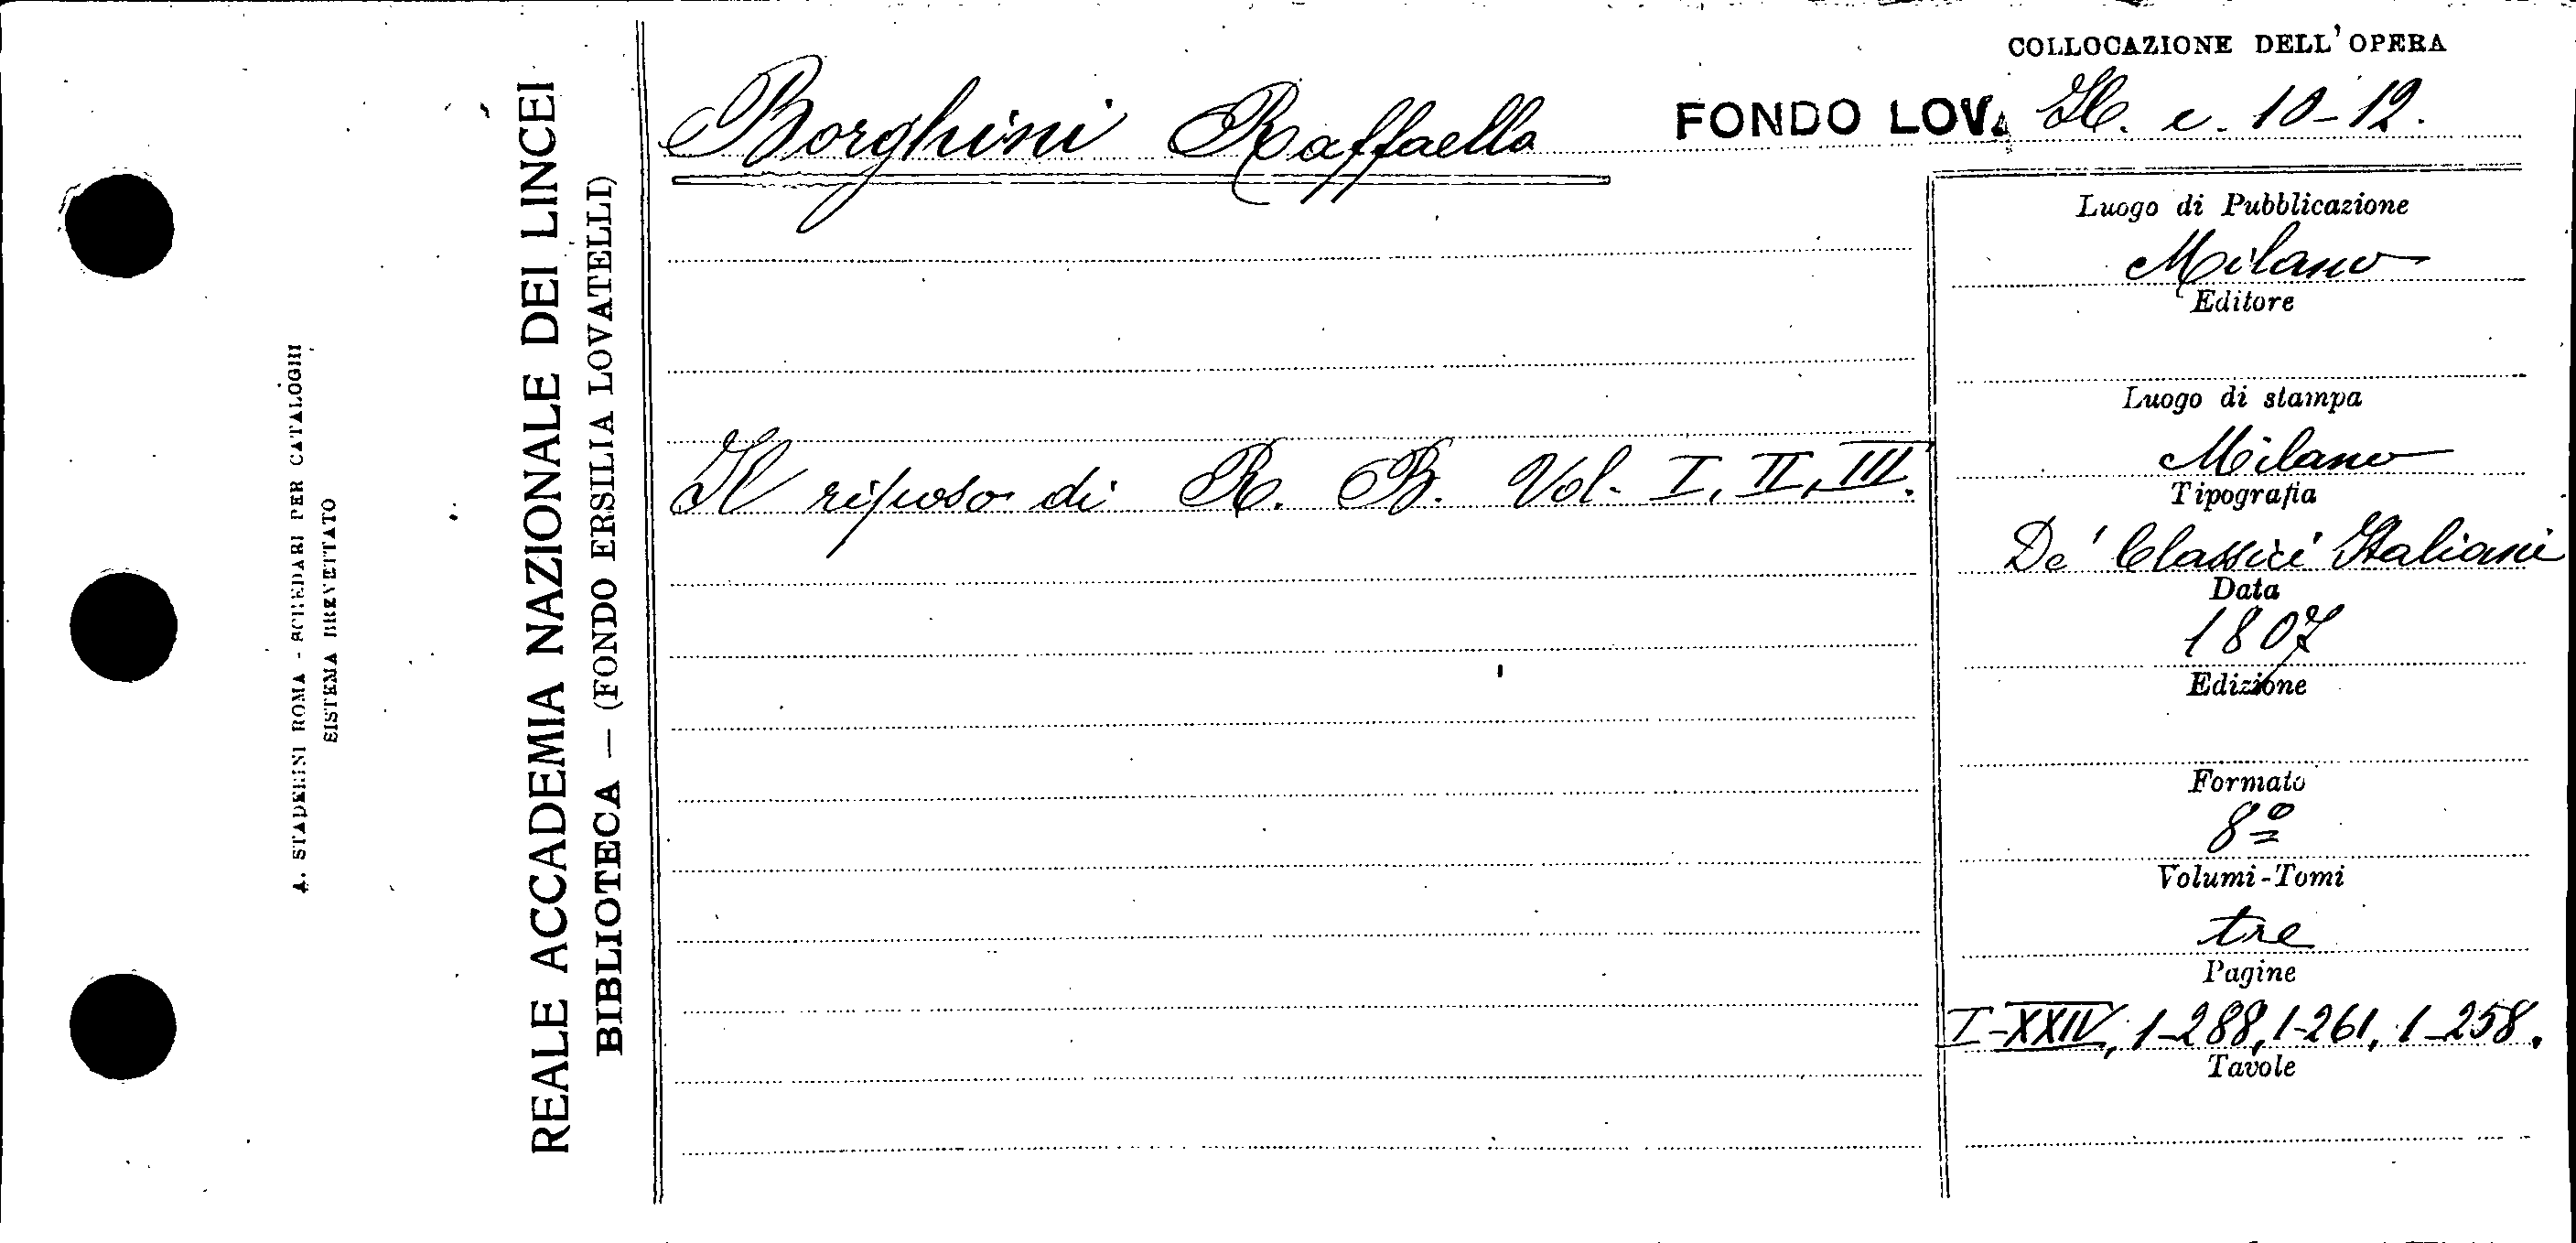 COLLOCAZIONE DELL'OPERA
Borghini Raffaello
FONDO LOV. c. 10-12.
Luogo di Pubblicazione
Milano
Editore
Luogo di stampa
Milano
Il riposo di R. B. Vol. I, II, III.
Tipografia
De' Classici Italiani
Data
1807
Edizione
Formato
8º
Volumi-Tomi
tre
Pagine
I-XXIV, 1-288, 1-261, 1-258.
Tavole
REALE ACCADEMIA NAZIONALE DEI LINCEI
BIBLIOTECA — (FONDO ERSILIA LOVATELLI)
A. STADERINI ROMA - SCHEDARI PER CATALOGHI
SISTEMA BREVETTATO